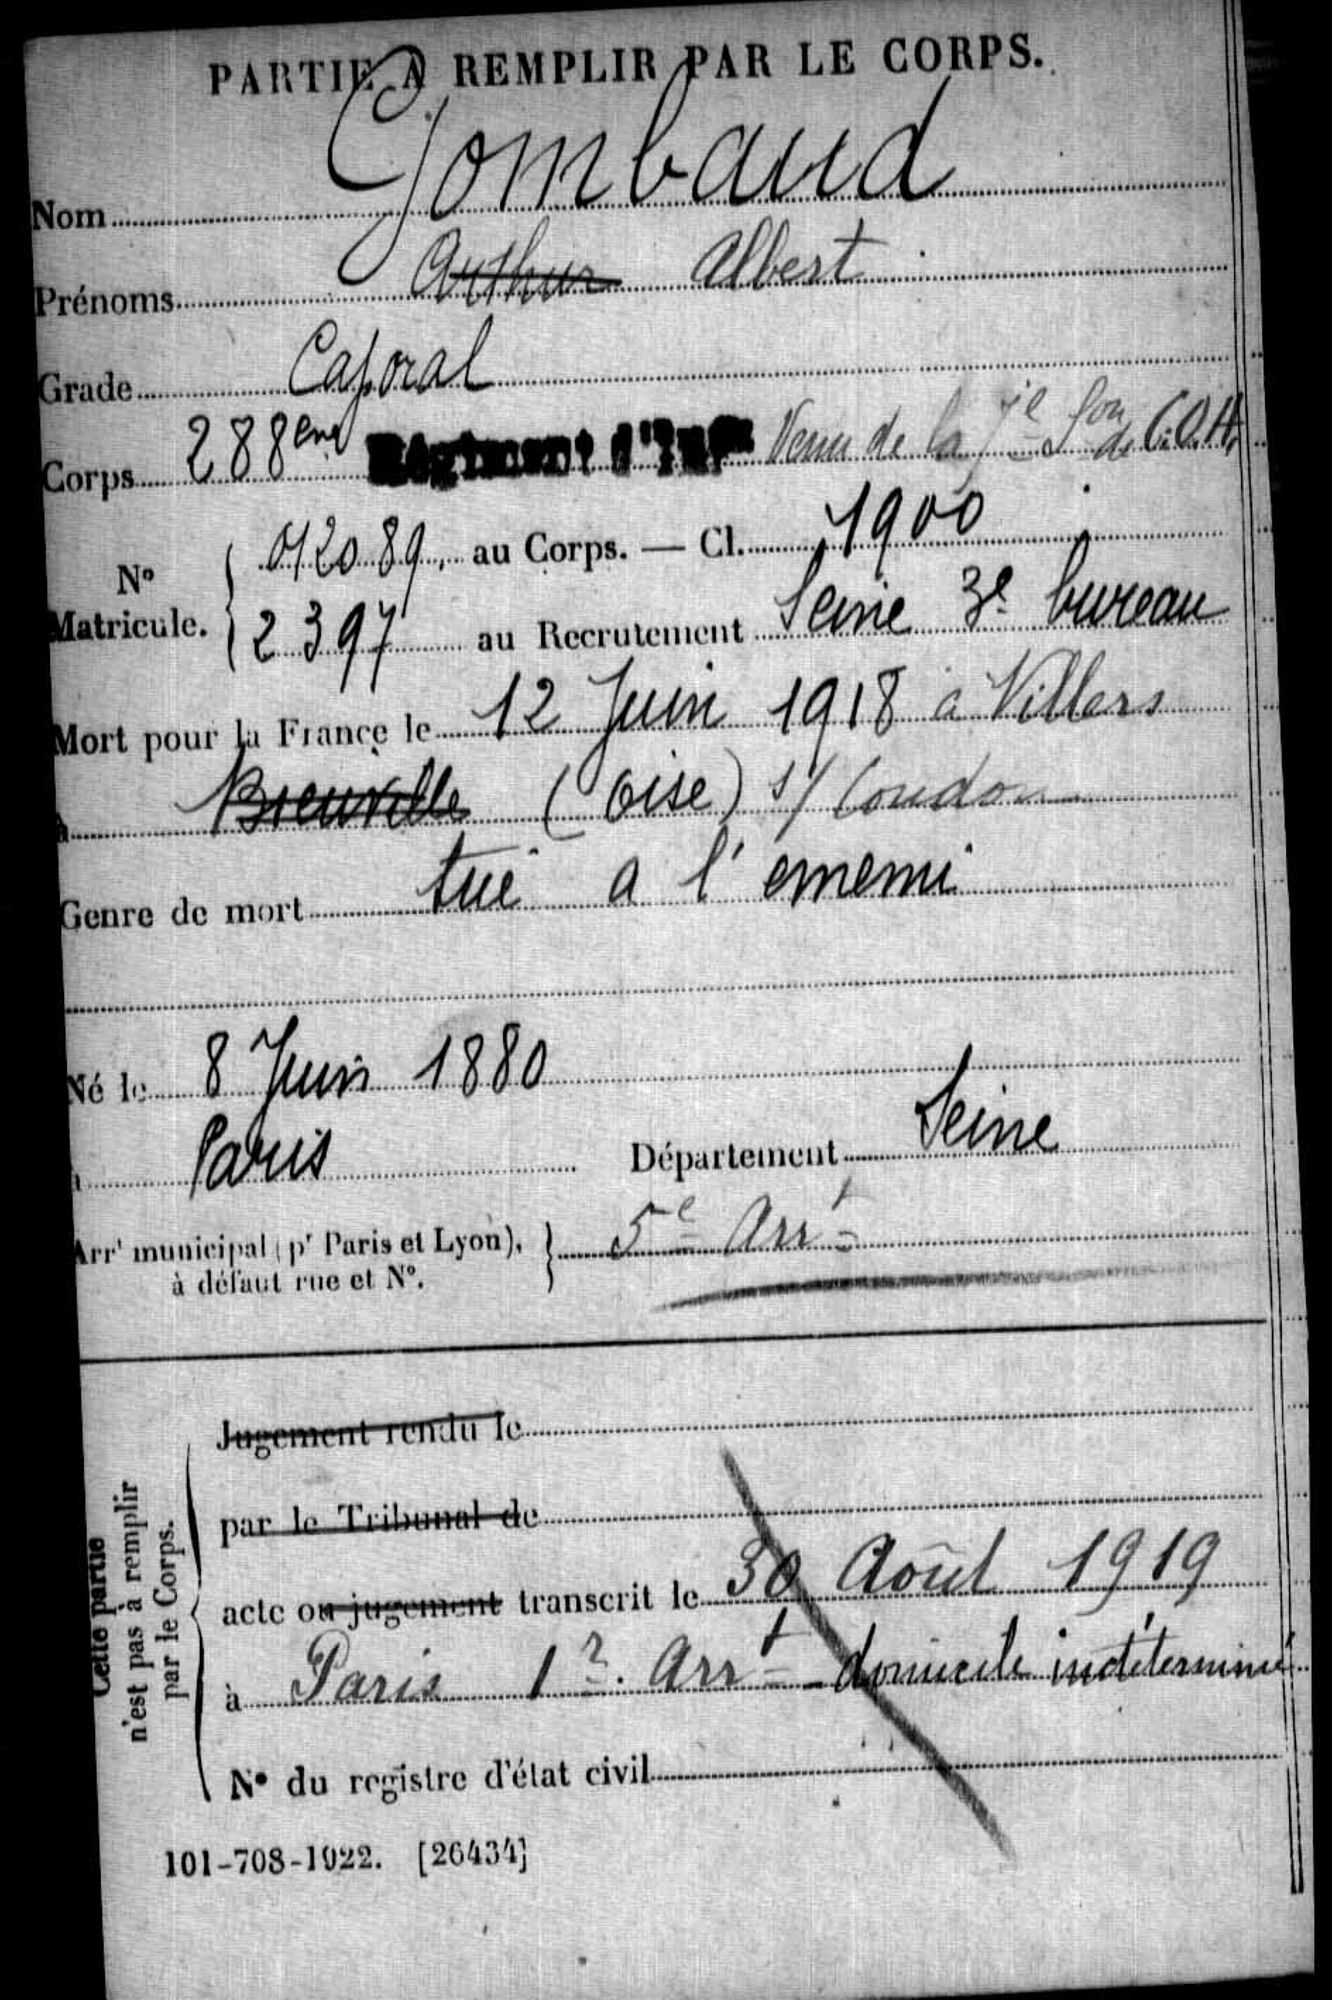 PARTIE A REMPLIR PAR LE CORPS.
Nom Gombaud
Prénoms Arthur Albert
Grade Caporal
Corps 288ème Régiment d'Infie Venu de la 7e Son de C.O.A.
No Matricule. 012089. au Corps. — Cl. 1900
2397 au Recrutement Seine 3e bureau
Mort pour la France le 12 Juin 1918 à Villers
à Bienville (Oise) s/ Coudon
Genre de mort tué a l'ennemi
Né le 8 Juin 1880
à Paris Département Seine
Arrt municipal (pr Paris et Lyon), 5e Arrt
à défaut rue et No.
Cette partie
n'est pas à remplir
par le Corps.
Jugement rendu le
par le Tribunal de
acte ou jugement transcrit le 30 Août 1919
à Paris 1r. Arrt - domicile indéterminé
No du registre d'état civil
101-708-1922. [26434]